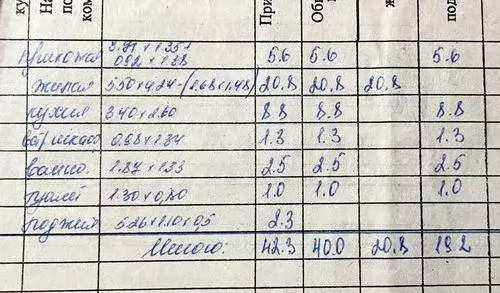 ку На по ком При Об ж под
прихожая 3.71 x 1.35+ 5.6 5.6 5.6
0.92 x 1.38
жилая 5.50 x 4.24 - (1.68 x 1.48) 20.8 20.8 20.8
кухня 3.40 x 2.60 8.8 8.8 8.8
0.98 x 1.34 1.3 1.3 1.3
ванно. 1.87 x 1.33 2.5 2.5 2.5
туалет 1.30 x 0,80 1.0 1.0 1.0
лоджия 5.26 x 1.10 x 0,5 2.3
Итого: 42.3 40.0 20.8 19.2